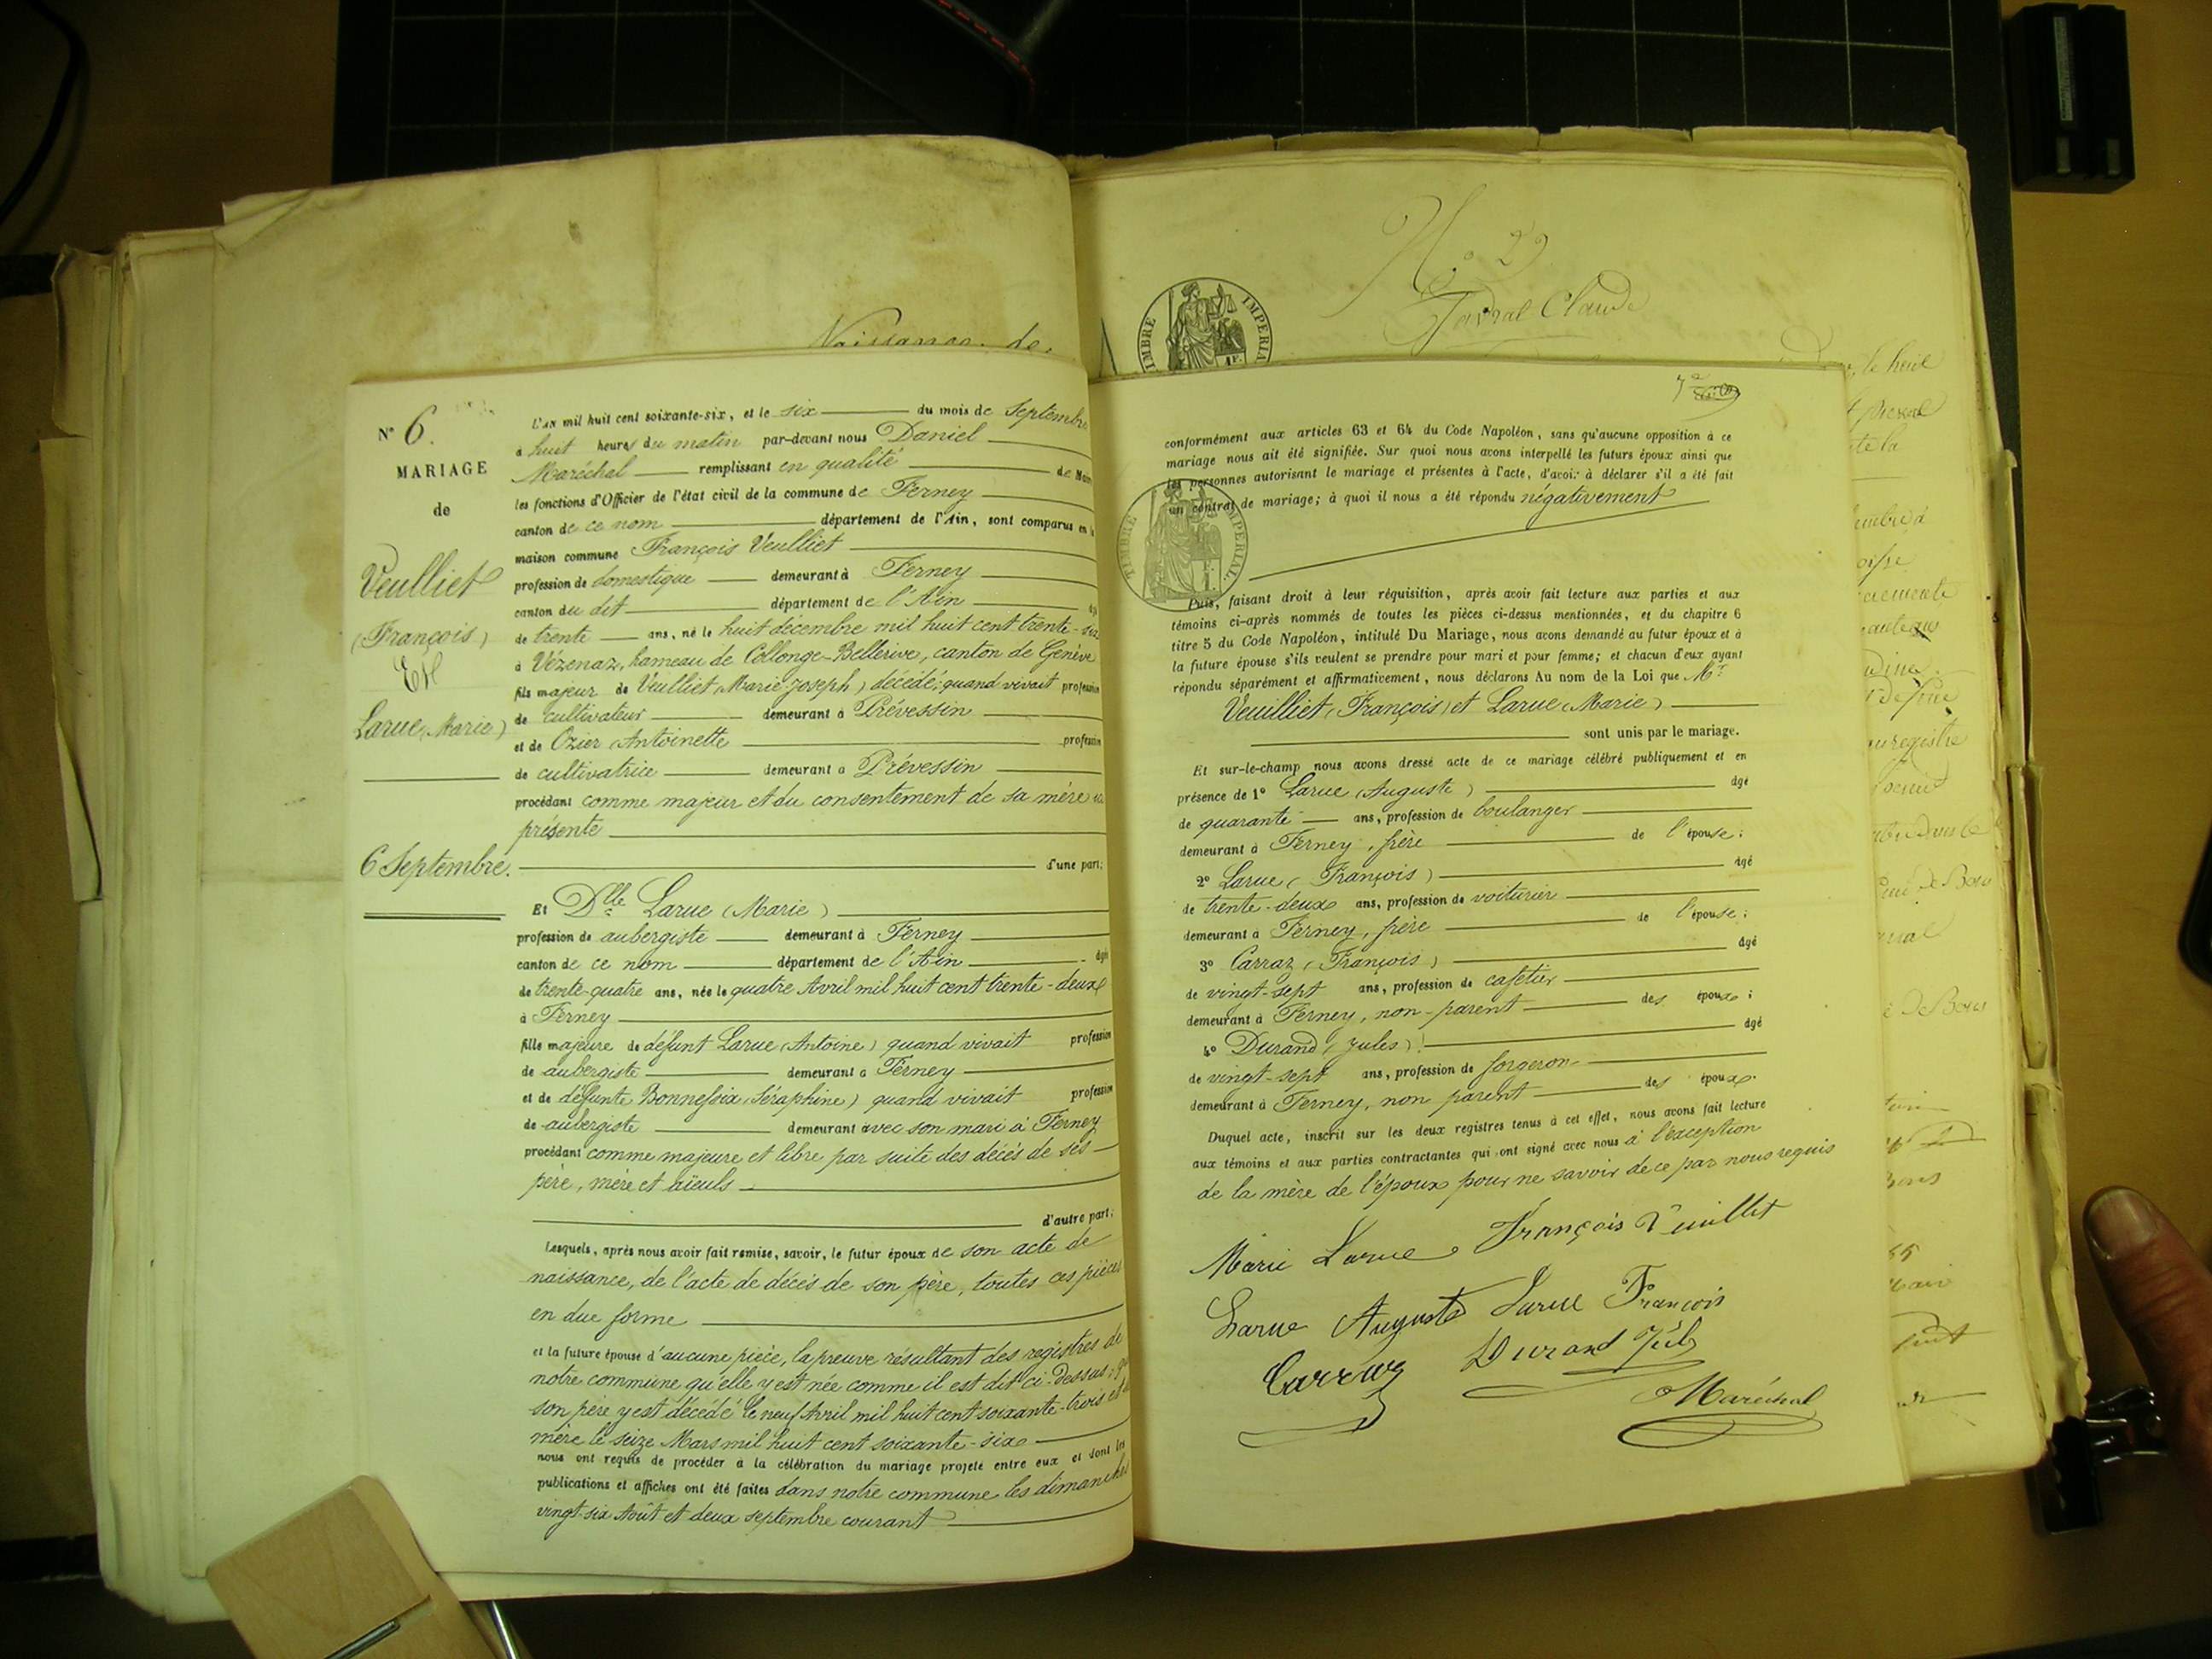 Naissance de
N° 29
Claude
TIMBRE IMPERIAL
AF.
N° 6.
MARIAGE
de
Veulliet
(François)
Et
Larue (Marie)
6 Septembre.
L'AN mil huit cent soixante-six, et le six du mois de Septembre
à huit heures du matin par-devant nous Daniel
Maréchal remplissant en qualité de Maire
les fonctions d'Officier de l'état civil de la commune de Ferney
canton de ce nom département de l'Ain, sont comparus en la
maison commune François Veulliet
profession de domestique demeurant à Ferney
canton du dit département de l'Ain âgé
de trente ans, né le huit décembre mil huit cent trente-six
à Vézenaz, hameau de Collonge-Bellerive, canton de Genève
fils majeur de Veulliet (Marie Joseph) décédé; quand vivait profession
de cultivateur demeurant à Prévessin
et de Ozier (Antoinette profession
de cultivatrice demeurant à Prévessin
procédant comme majeur et du consentement de sa mère ici
présente
d'une part;
Et Dlle Larue (Marie)
profession de aubergiste demeurant à Ferney
canton de ce nom département de l'Ain âgée
de trente-quatre ans, née le quatre Avril mil huit cent trente-deux
à Ferney
fille majeure de défunt Larue (Antoine) quand vivait profession
de aubergiste demeurant à Ferney
et de défunte Bonnefoix (Séraphine) quand vivait profession
de aubergiste demeurant avec son mari à Ferney
procédant comme majeure et libre par suite des décès de ses
père, mère et aïeuls
d'autre part;
Lesquels, après nous avoir fait remise, savoir, le futur époux de son acte de
naissance, de l'acte de décès de son père, toutes ces pièces
en due forme
et la future épouse d'aucune pièce, la preuve résultant des registres de
notre commune qu'elle y est née comme il est dit ci-dessus; que
son père y est décédé le neuf Avril mil huit cent soixante-trois et
mère le seize Mars mil huit cent soixante-six
nous ont requis de procéder à la célébration du mariage projeté entre eux et dont les
publications et affiches ont été faites dans notre commune les dimanches
vingt-six Août et deux septembre courant
conformément aux articles 63 et 64 du Code Napoléon, sans qu'aucune opposition à ce
mariage nous ait été signifiée. Sur quoi nous avons interpellé les futurs époux ainsi que
les personnes autorisant le mariage et présentes à l'acte, d'avoir à déclarer s'il a été fait
un contrat de mariage; à quoi il nous a été répondu négativement
TIMBRE IMPERIAL.
Puis, faisant droit à leur réquisition, après avoir fait lecture aux parties et aux
témoins ci-après nommés de toutes les pièces ci-dessus mentionnées, et du chapitre 6
titre 5 du Code Napoléon, intitulé Du Mariage, nous avons demandé au futur époux et à
la future épouse s'ils veulent se prendre pour mari et pour femme; et chacun d'eux ayant
répondu séparément et affirmativement, nous déclarons Au nom de la Loi que Mr
Veuilliet (François) et Larue (Marie)
sont unis par le mariage.
Et sur-le-champ nous avons dressé acte de ce mariage célébré publiquement et en
présence de 1° Larue (Auguste) âgé
de quarante ans, profession de boulanger
demeurant à Ferney, frère de l'épouse;
2° Larue (François) âgé
de trente-deux ans, profession de voiturier
demeurant à Ferney, frère de l'épouse;
3° Carraz (François) âgé
de vingt-sept ans, profession de cafetier
demeurant à Ferney, non-parent des époux;
4° Durand (Jules) âgé
de vingt-sept ans, profession de forgeron
demeurant à Ferney, non parent des époux.
Duquel acte, inscrit sur les deux registres tenus à cet effet, nous avons fait lecture
aux témoins et aux parties contractantes qui ont signé avec nous à l'exception
de la mère de l'époux pour ne savoir de ce par nous requis
Marie Larue François Veuillet
Larue Auguste Larue François
Carraz Durand Jules
Maréchal